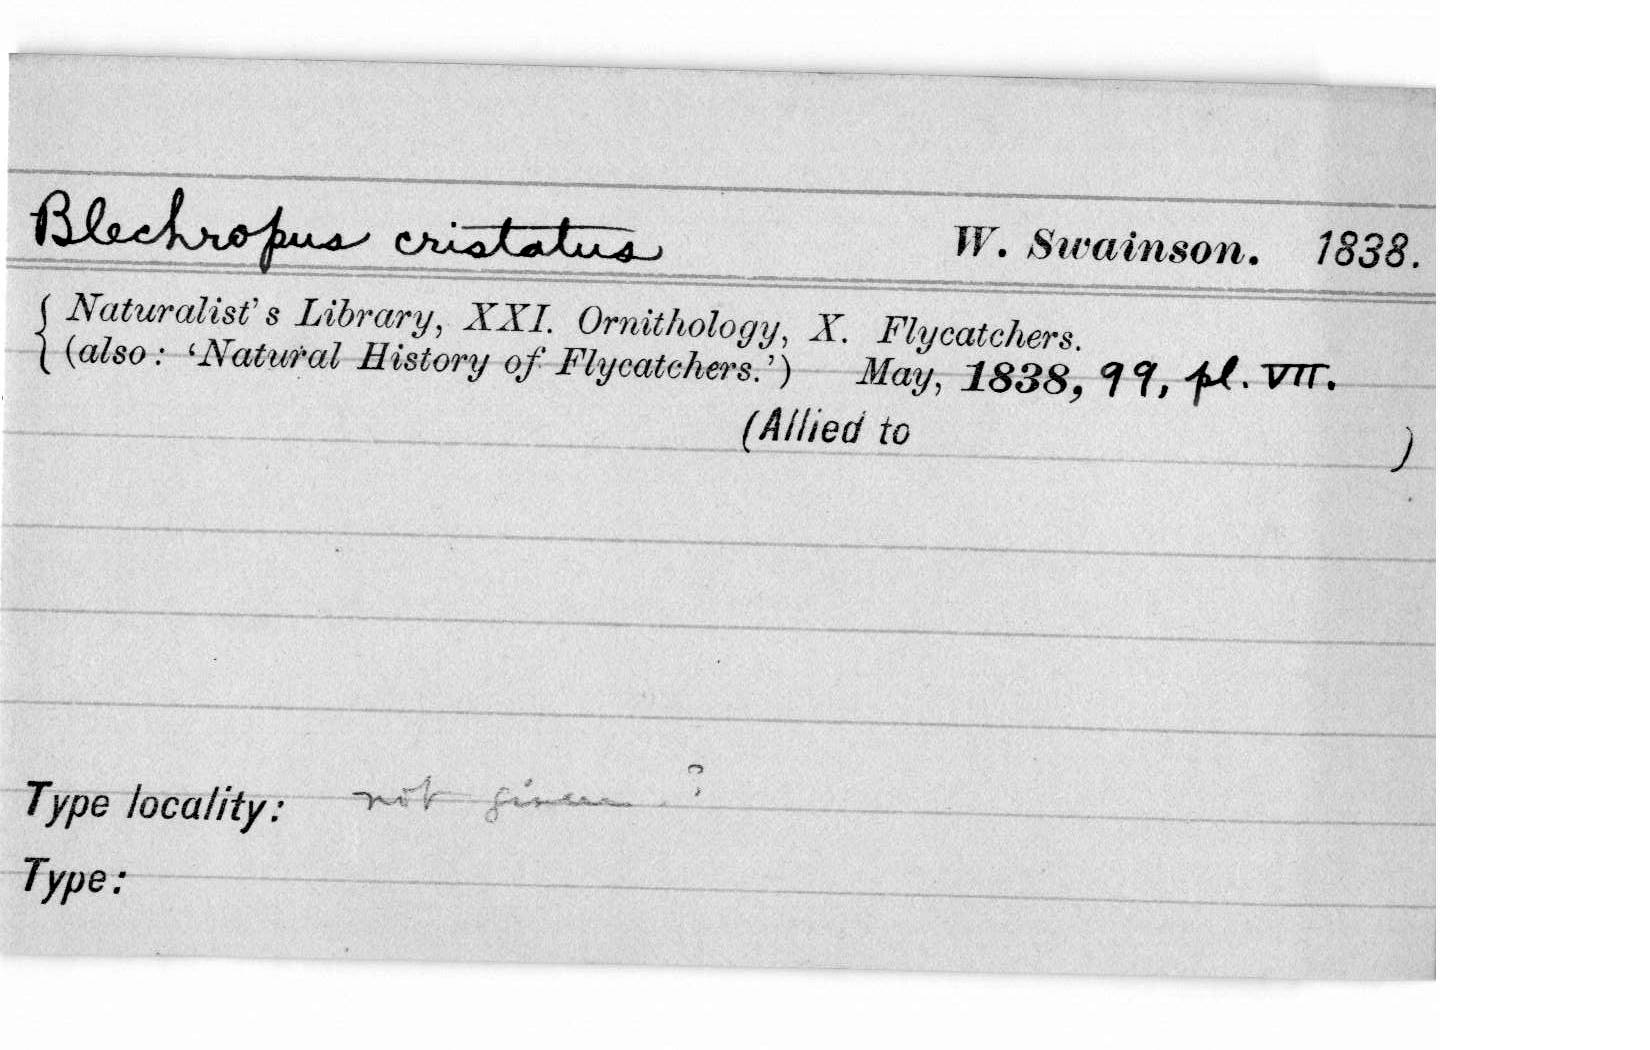 Blechropus cristatus W. Swainson. 1838.
{ Naturalist's Library, XXI. Ornithology, X. Flycatchers.
(also: 'Natural History of Flycatchers.') May, 1838, 99, pl. VII.
(Allied to )
Type locality: not given ?
Type: